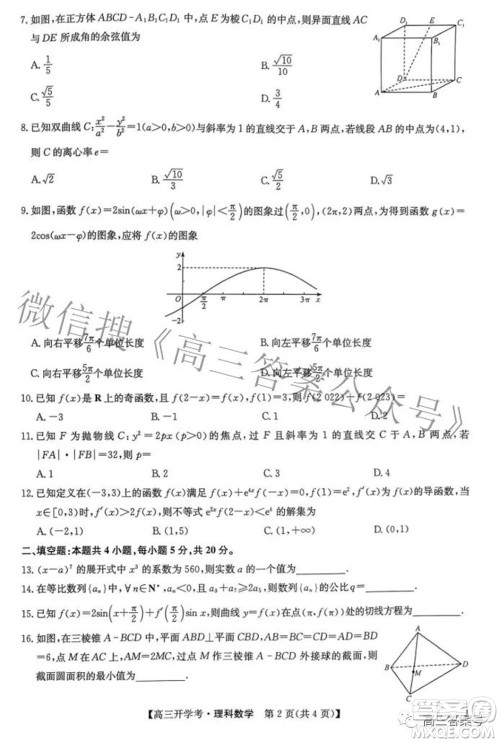 7.如图,在正方体ABCD-A₁B₁C₁D₁中,点E为棱C₁D₁的中点,则异面直线AC
与DE所成角的余弦值为
A.1/5
B.√10/10
C.√5/5
D.3/4
D₁ E C₁
A₁ B₁
D C
A B
8.已知双曲线C:x²/a²-y²/b²=1(a>0,b>0)与斜率为1的直线交于A,B两点,若线段AB的中点为(4,1),
则C的离心率e=
A.√2
B.√10/3
C.√5/2
D.√3
9.如图,函数f(x)=2sin(ωx+φ)(ω>0,|φ|<π/2)的图象过(π/2,0),(2π,2)两点,为得到函数g(x)=
2cos(ωx-φ)的图象,应将f(x)的图象
y
2
O π/2 π 2π 3π x
-2
A.向右平移7π/6个单位长度
B.向左平移7π/6个单位长度
C.向右平移5π/2个单位长度
D.向左平移5π/2个单位长度
10.已知f(x)是R上的奇函数,且f(2-x)=f(x),f(1)=3,则f(2 022)+f(2 023)=
A.-3
B.0
C.3
D.6
11.已知F为抛物线C:y²=2px(p>0)的焦点,过F且斜率为1的直线交C于A,B两点,若
|FA|·|FB|=32,则p=
A.1
B.2
C.3
D.4
12.已知定义在(-3,3)上的函数f(x)满足f(x)+e⁴ˣf(-x)=0,f(1)=e²,f′(x)为f(x)的导函数,当
x∈[0,3)时,f′(x)>2f(x),则不等式e²ˣf(2-x)<e⁴的解集为
A.(-2,1)
B.(1,5)
C.(1,+∞)
D.(0,1)
二、填空题:本题共4小题,每小题5分,共20分。
13.(x-a)⁷的展开式中x³的系数为560,则实数a的一个值为
14.在等比数列{aₙ}中,∀n∈N*,aₙ<0,且a₃+2a₄=a₅,则数列{aₙ}的公比q=
15.已知f(x)=2sin(x+π/2)+f′(π/2)sin x,则曲线y=f(x)在点(π,f(π))处的切线方程为
16.如图,在三棱锥A-BCD中,平面ABD⊥平面CBD,AB=BC=CD=AD=BD
=6,点M在AC上,AM=2MC,过点M作三棱锥A-BCD外接球的截面,则
截面圆面积的最小值为
A
B D
M
C
【高三开学考·理科数学 第2页(共4页)】
微信搜《高三答案公众号》
高三答案号